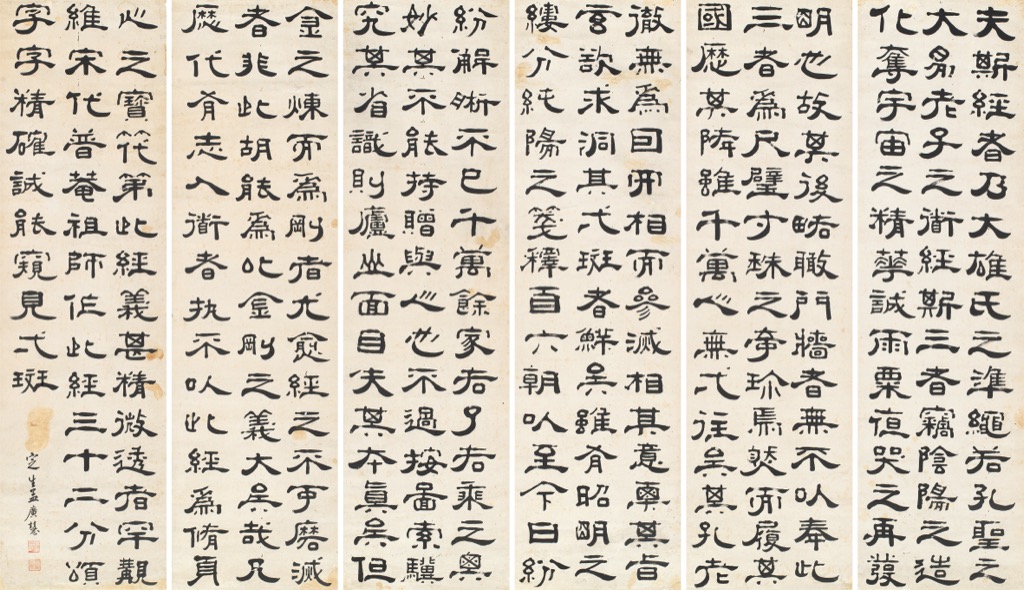 夫斯經者乃大雄氏之準繩若孔聖之
大易老子之衜經斯三者竊陰陽之造
化奪宇宙之精華誠雨粟亱哭之再發
明也故其後略瞰門牆者無不以奉此
三者爲尺璧寸珠之爭珍焉然而履其
國歷其降雖千萬心無弌往矣其孔老
徹無爲回形相而參滅相其意奧其旨
玄欲求洞其弌斑者鮮矣雖有昭明之
縷分純陽之箋釋自六朝以至今日紛
紛解晰不已千萬餘家若了若乘之奧
妙其不能持贈與心也不過按圖索驥
究其省識則廬山面目失其本真矣但
金之煉而爲剛者尤愈經之不可磨滅
者非此胡能爲以金剛之義大矣哉凡
歷代有志入衜者孰不以此經爲脩真
心之寶筏第此經義甚精微透者罕觀
維宋代普菴祖師作此經三十二分頌
字字精確誠能窺見弌斑
定生孟廣慧